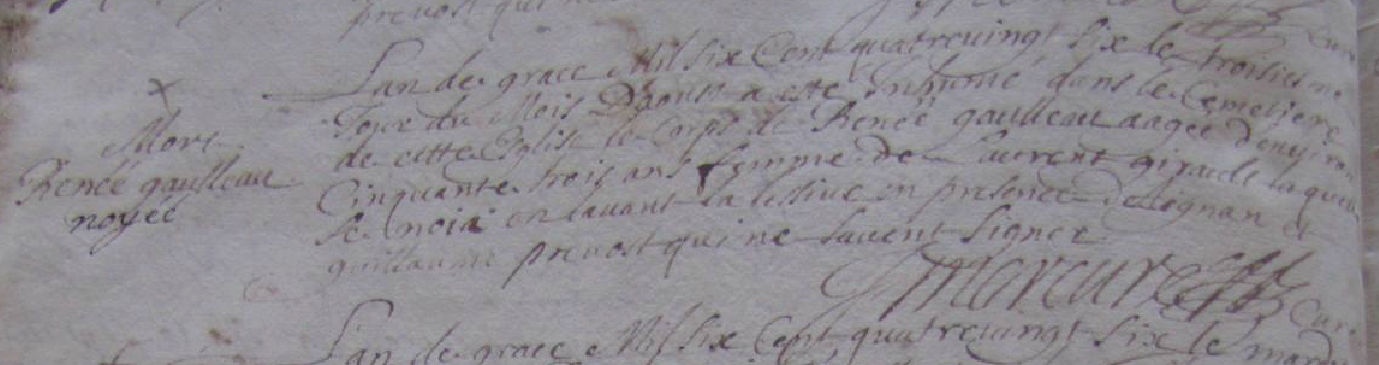 prevost qui ne
Lan de grace Mil six Cent quatrevingt six le troisiesme
Jour du Mois Daoust a este Inhumé dans le Cemetiere
de cette Eglise le Corps de Renee gaulleau aagée denviron
Cinquante trois ans femme de Laurent girault laquelle
se noia en lavant la lessive en presence de et
guillaume prevost qui ne savent signer
Mercure Curé
x
Mort
Renée gaulleau
noyée
Lan de grace Mil six Cent quatrevingt six le mardy